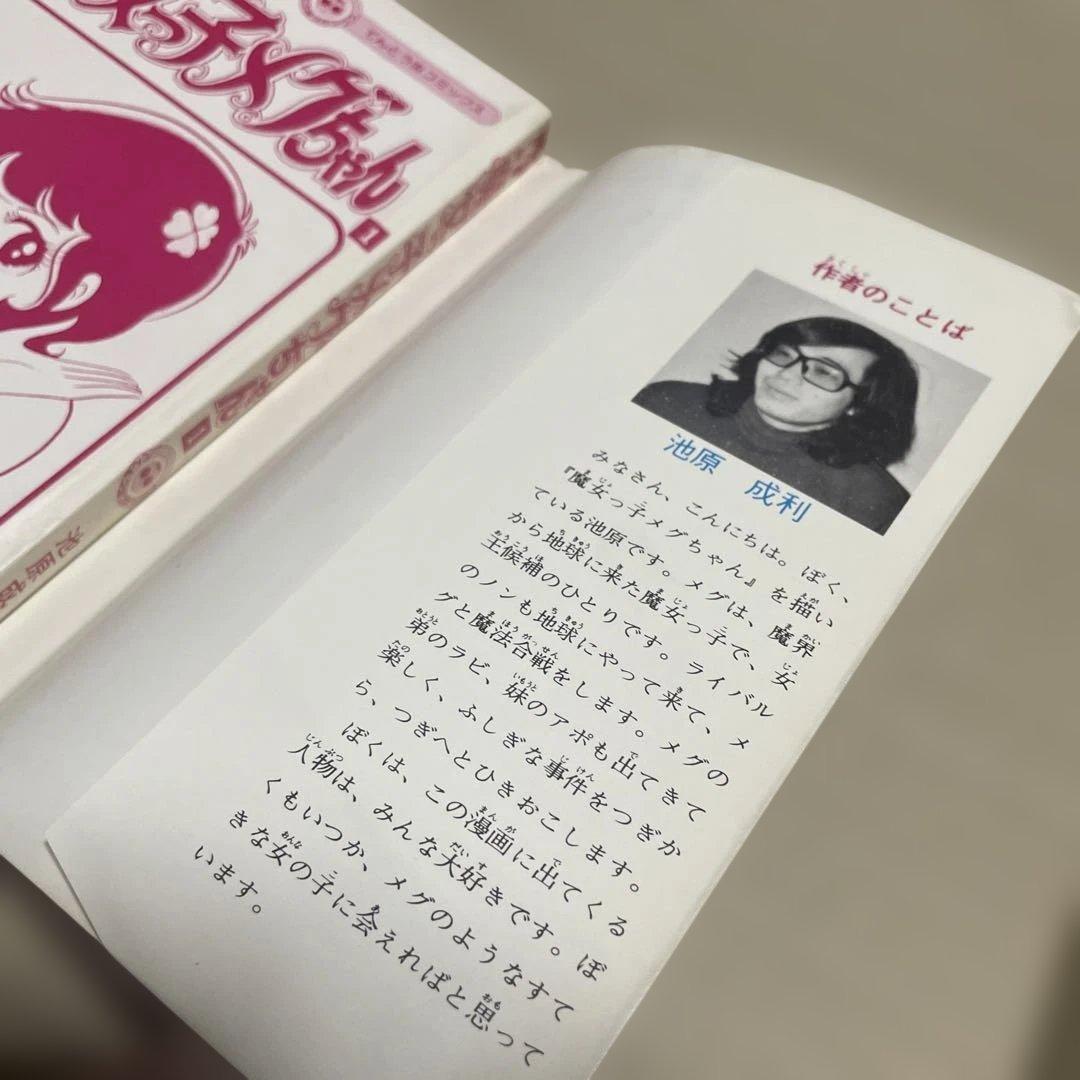 っ子メグちゃん
1
てんとう虫コミックス
1
作者のことば
池原 成利
みなさん、こんにちは。ぼく、
『魔女っ子メグちゃん』を描い
ている池原です。メグは、魔界
から地球に来た魔女っ子で、女
王候補のひとりです。ライバル
のノンも地球にやって来て、メ
グと魔法合戦をします。メグの
弟のラビ、妹のアポも出てきて
楽しく、ふしぎな事件をつぎか
ら、つぎへとひきおこします。
ぼくは、この漫画に出てくる
人物は、みんな大好きです。ぼ
くもいつか、メグのようなすて
きな女の子に会えればと思って
います。